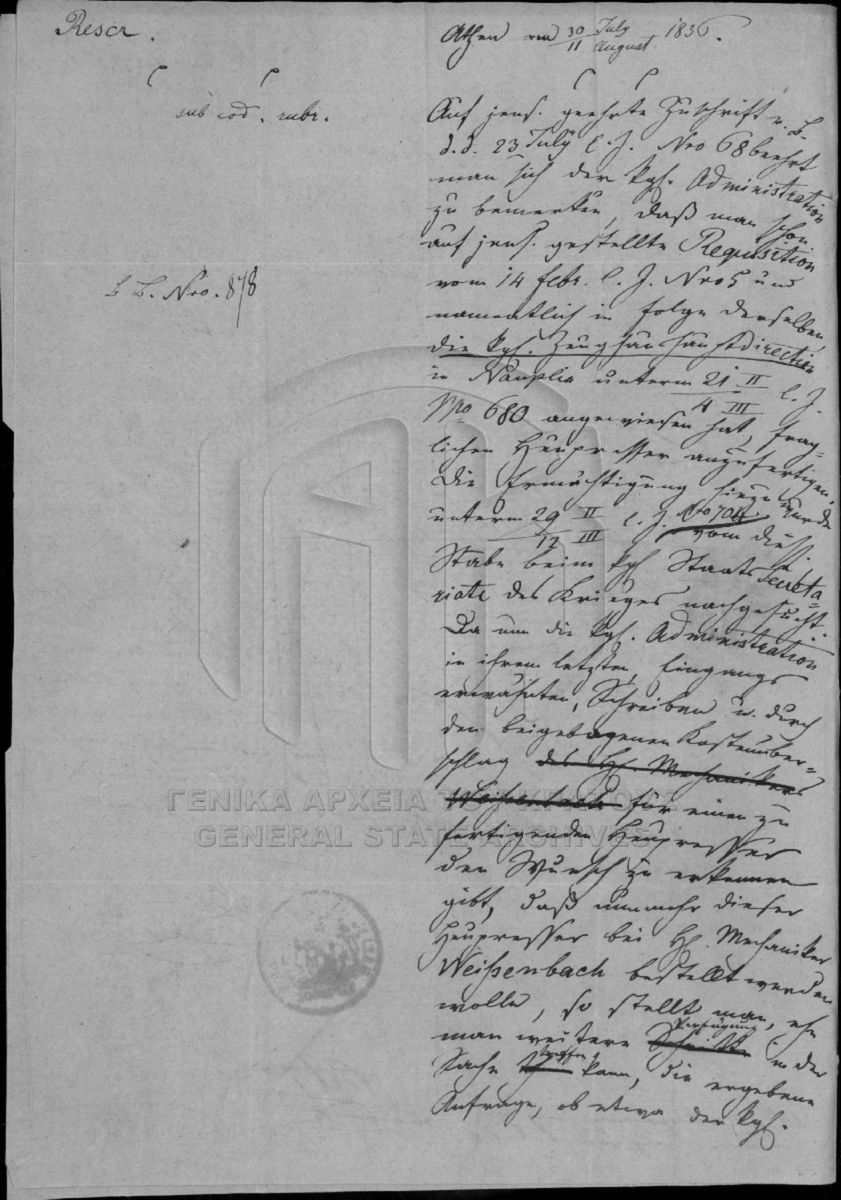 Rescr.
sub cod. mbr.
L B. Nro. 878
Athen am 30/11 July/August 1836.
Auf jens. geehrte Zuschrift v. B.
d. d. 23 July l. J. Nro 68 beehrt
man sich der kgl. Administration
zu bemerken, daß man schon
auf jens. gestellte Requisition
vom 14 febr. l. J. Nro 5 und
namentlich in folge derselben,
die kgl. Zeughaushauptdirection
in Nauplia unterm 21 II / 4 III l. J.
Nro 680 angewiesen hat, frag-
lichen Heupresser anzufertigen.
Die Ermächtigung hiezu wurde
unterm 29 II / 12 III l. J. Nro 704. vom dies.
Stabe beim kgl Staats Secreta-
riate des Krieges nachgesucht.
Da nun die kgl. Administration
in ihrem letzten, Eingangs
erwähnten, Schreiben u. durch
den beigebogenen Kostenüber-
schlag des H. Mechanikers
Weißenbach für einen zu
fertigenden Heupresser
den Wunsch zu erkennen
gibt, daß nunmehr dieser
Heupresser bei H. Mechaniker
Weißenbach bestellt werden
wolle, so stellt man, ehe
man weitere Schritte Verfügung in der
Sache treffen kann, die ergebene
Anfrage, ob etwa der kgl.
ΓΕΝΙΚΑ ΑΡΧΕΙΑ ΤΟΥ ΚΡΑΤΟΥΣ
GENERAL STATE ARCHIVES